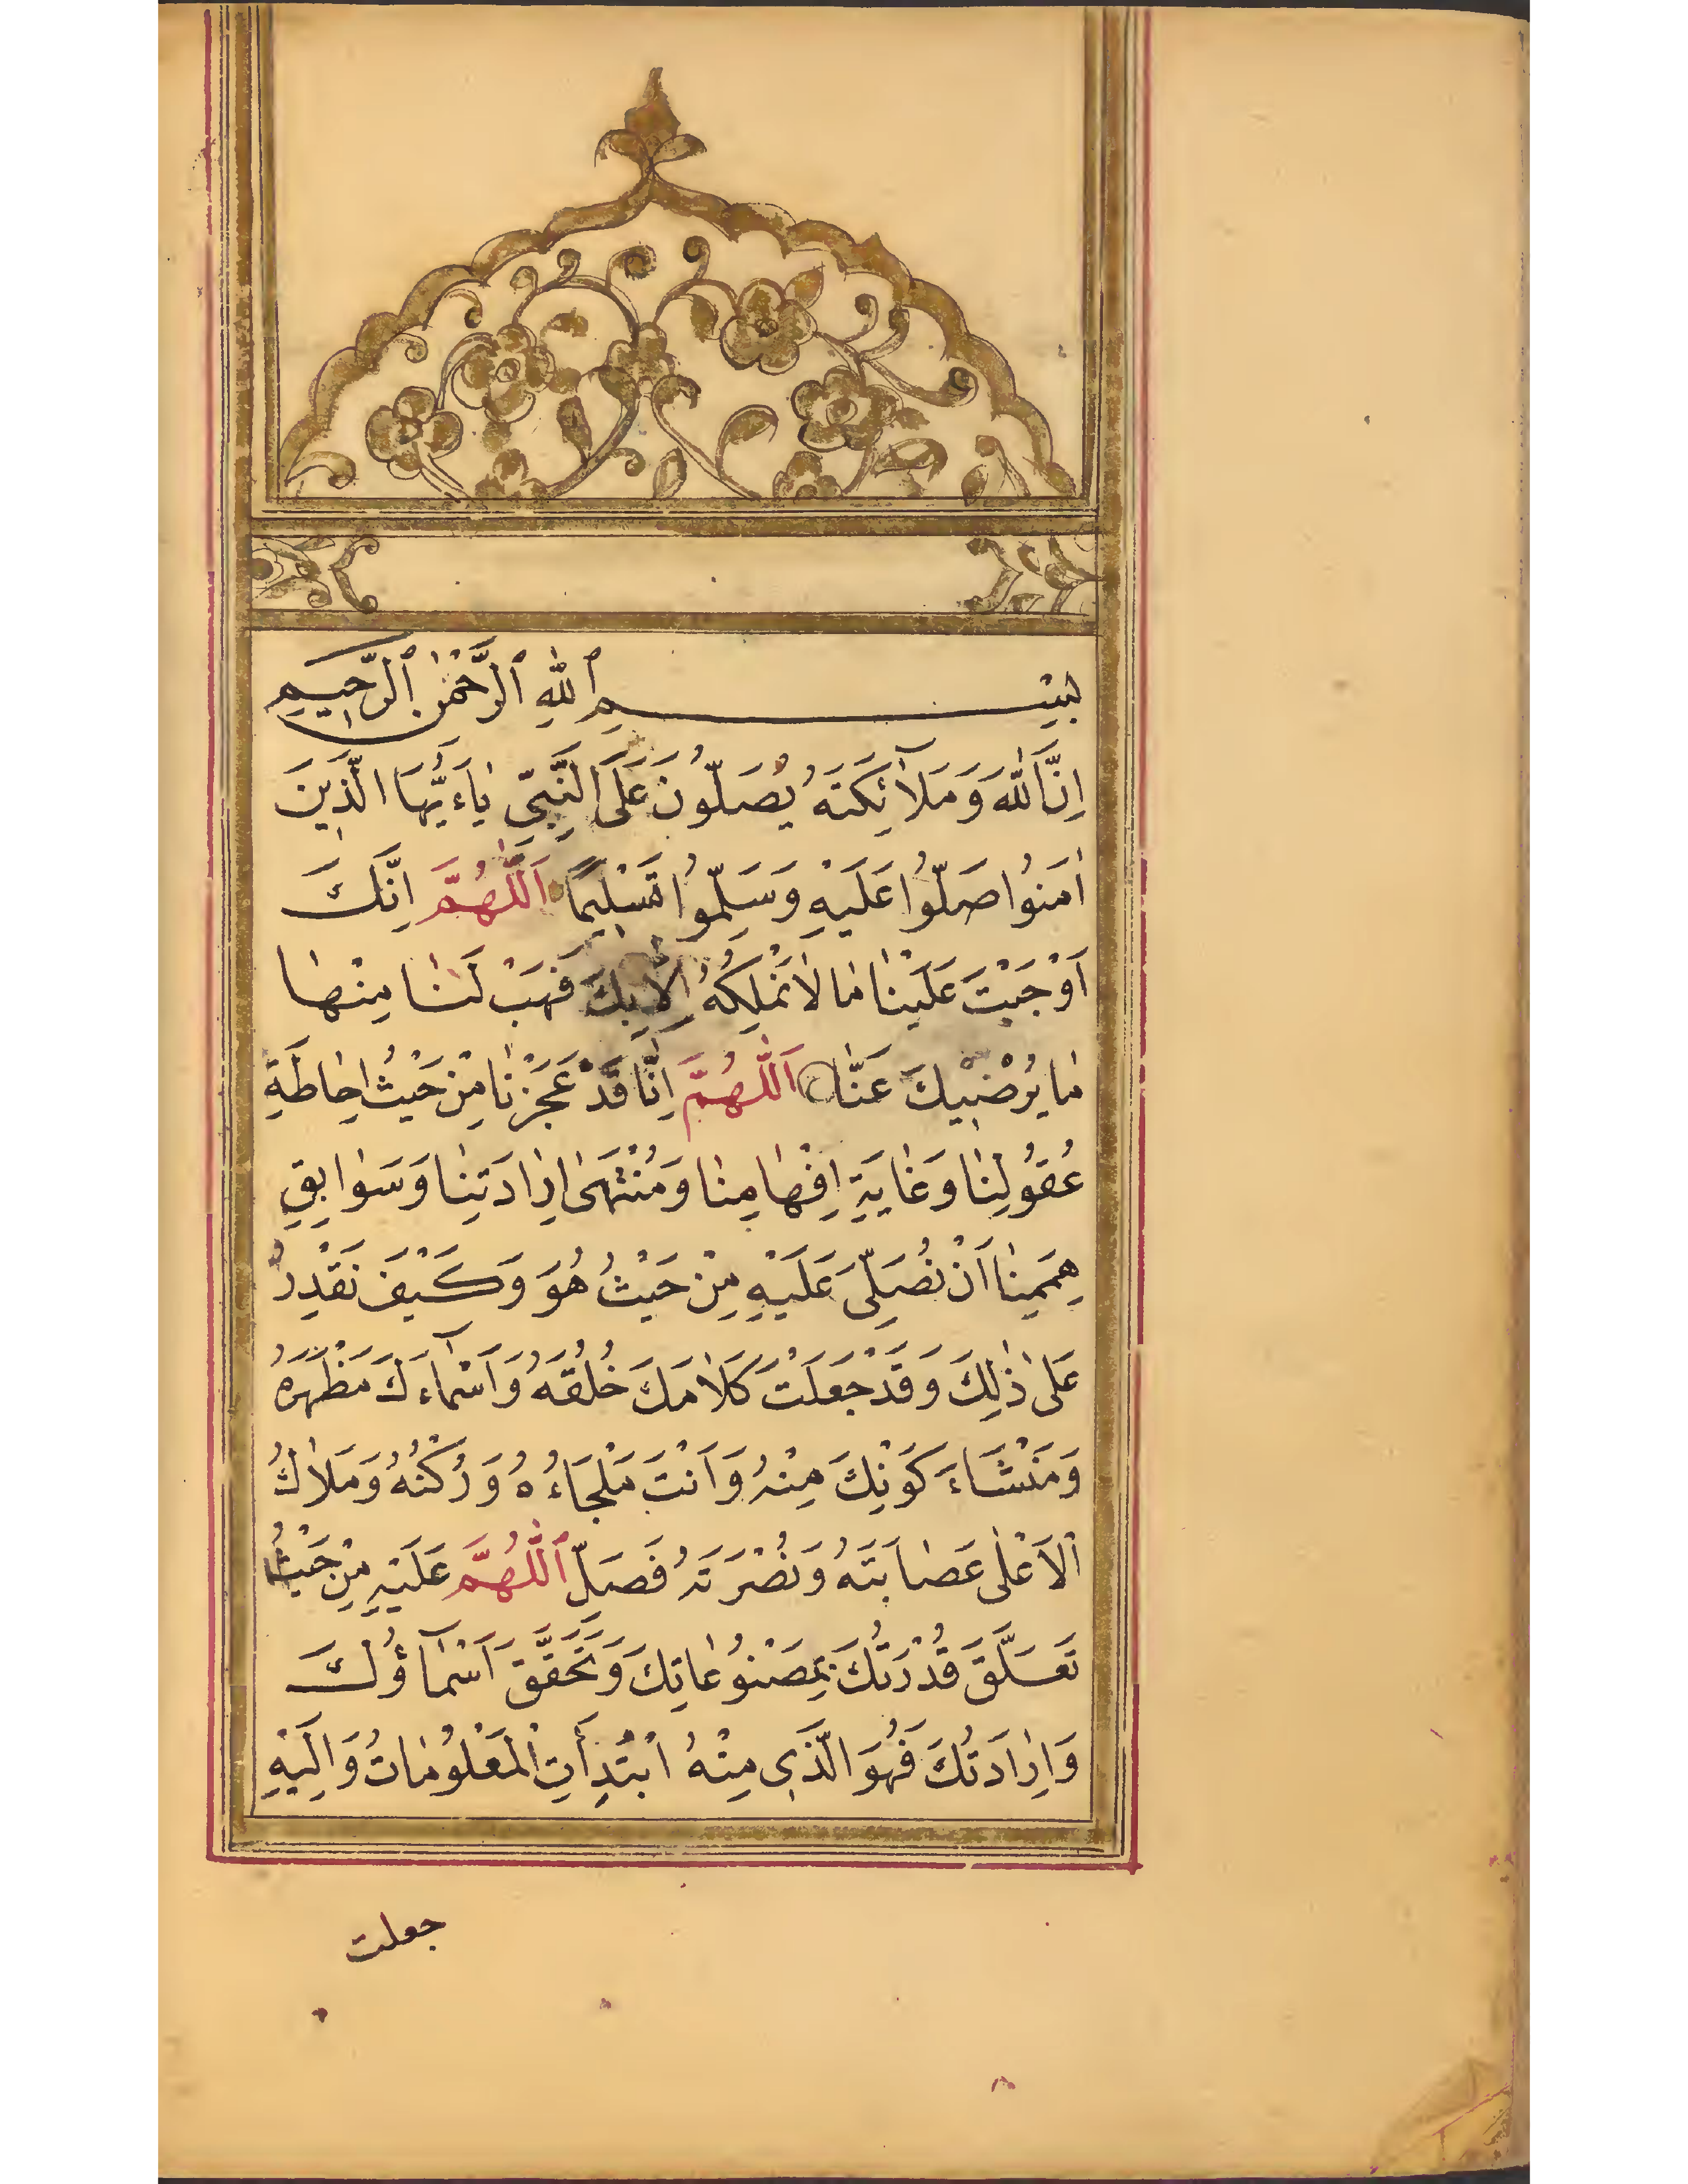 بِسْمِ ٱللّٰهِ ٱلرَّحْمٰنِ ٱلرَّحِيمِ
اِنَّ اللّٰهَ وَمَلَآئِكَتَهُ يُصَلُّونَ عَلَى النَّبِيِّ يٰاءَيُّهَا الَّذِينَ
اٰمَنُوا صَلُّوا عَلَيْهِ وَسَلِّمُوا تَسْلِيمًا اَللّٰهُمَّ اِنَّكَ
اَوْجَبْتَ عَلَيْنٰا مٰا لٰا نَمْلِكُهُ اِلّٰا بِكَ فَهَبْ لَنٰا مِنْهٰا
مٰا يُرْضِيْكَ عَنّٰا اَللّٰهُمَّ اِنّٰا قَدْ عَجَزْنٰا مِنْ حَيْثُ اِحٰاطَةِ
عُقُولِنٰا وَغٰايَةِ اِفْهٰامِنٰا وَمُنْتَهَىٰ اِرٰادَتِنٰا وَسَوٰابِقِ
هِمَمِنٰا اَنْ نُصَلِّىَ عَلَيْهِ مِنْ حَيْثُ هُوَ وَكَيْفَ نَقْدِرُ
عَلىٰ ذٰلِكَ وَقَدْ جَعَلْتَ كَلٰامَكَ خُلُقَهُ وَاَسْمٰآءَكَ مَظْهَرَهُ
وَمَنْشَاءَ كَوْنِكَ مِنْهُ وَاَنْتَ مَلْجَاءُهُ وَرُكْنُهُ وَمَلٰاكُ
الْاَعْلٰى عَصٰابَتَهُ وَنُصْرَتَهُ فَصَلِّ ٱللّٰهُمَّ عَلَيْهِ مِنْ حَيْثُ
تَعَلَّقَ قُدْرَتُكَ بِمَصْنُوعٰاتِكَ وَتَحَقَّقَ اَسْمٰآؤُكَ
وَاِرٰادَتُكَ فَهُوَ الَّذِى مِنْهُ ابْتُدِأَتِ الْمَعْلُومٰاتُ وَاِلَيْهِ
جعلت
٨